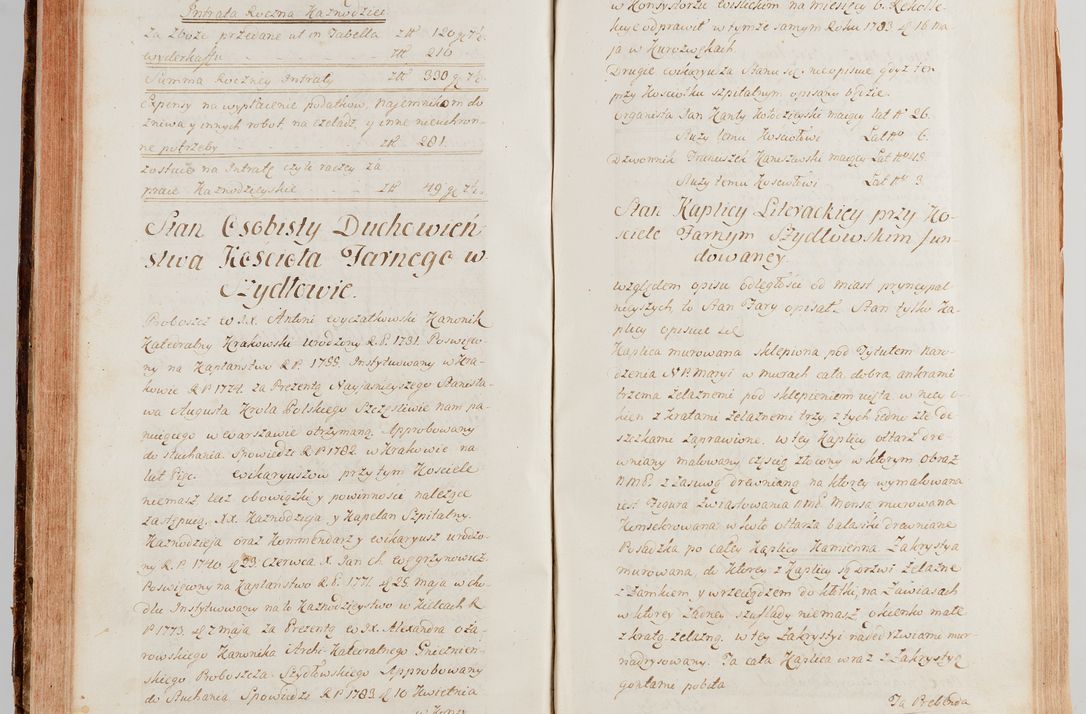 Intrata Roczna Kaznodziei
Za zboże przedane ut in Tabella zł 120 g 7½.
wyderkaffu zł 210
Summa Roczney Intraty zł 330 g 7½.
Expensy na wypłacenie podatkow, najemnikom do
żniwa y innych robot, na czeladz, y inne nieuchron-
ne potrzeby zł 281.
zostaie na Intratę czyli raczey za
pracę Kaznodzieyskie zł 49 g 7½.
Stan Osobisty Duchowień
stwa Kościoła Farnego w
Szydłowie.
Proboszcz W J.X. Antoni Wyczałkowski Kanonik
Katedralny Krakowski urodzony R.P. 1731. Poswięco-
ny na Kapłanstwo R.P. 1755. Instytuowany w Kra-
kowie R.P. 1774. za Prezentą Nayjasnieyszego Stanisła-
wa Augusta Krola Polskiego Szczęsliwie nam pa-
nuiącego w Warszawie otrzymaną. Approbowany
do słuchania Spowiedzi R.P. 1782. w Krakowie na
lat Pięc. Wikaryuszow przy tym Kosciele
niemasz lecz obowiązki y powinnosci należące
zastępuią XX. Kaznodzieja y Kapelan Szpitalny.
Kaznodzieja oraz Kommendarz y Wikaryusz urodzo-
ny R.P. 1746 d 23 Czerwca X. Jan Ch. Węgrzynowicz
Poswięcony na Kapłanstwo R.P. 1771. d 25 Maja w
dłu Instytuowany na to Kaznodzieystwo w Kielcach R
P 1773. d 7 maja za Prezentą W JX. Alexandra Oża-
rowskiego Kanonika Archi-Katedralnego Gnieznien-
skiego Proboszcza Szydłowskiego Approbowany
do Słuchania Spowiedzi R.P. 1783 d 10 Kwietnia
w Konsystorzu na miesięcy 6. Rekolle-
kcye odprawił w tymże samym Roku 1783 d 16 ma-
ja w Kurozwękach.
Drugie Wikaryusza Stanu się nieopisuie gdyż ten
przy Kosciołku szpitalnym opisany będzie.
Organista Jan Kanty Kołodzieyski maiący lat No 26.
Służy temu Kosciołowi Lat No 6.
Dzwonnik Franciszek Kaniszewski maiący Lat No 48.
Służy temu Kosciołowi Lat No 3.
Stan Kaplicy Literackiey przy Ko-
sciele Farnym Szydłowskim fun-
dowaney.
Względem opisu odległości od miast pryncypal-
nieyszych, to Stan Fary opisał. Stan tylko Ka-
plicy opisuie się
Kaplica murowana sklepiona pod Tytułem Naro-
dzenia N P. Maryi w murach cała dobra, ankrami
trzema żelaznemi pod sklepieniem uięta, w niey o-
kien z kratami żelaznemi trzy, z tych iedno źle de-
szczkami zaprawione. w tey Kaplicy ołtarz dre-
wniany malowany częscią złocony w ktorym Obraz
N M P. z zasuwą drewnianą na ktorey wymalowana
iest Figura Zwiastowania N M P. Mensa murowana
Konsekrowana, w koło ołtarza balaski drewniane
Posadzka po całey Kaplicy Kamienna Zakrystya
murowana, do ktorey z Kaplicy są drzwi żelazne
z Zamkiem y wrzeciądzem do kłotki na Zawiasach
w ktorey żadney szuflady niemasz okienko małe
z kratą żelazną. w tey Zakrystyi nadedrzwiami mur
nadrysowany. Ta cała Kaplica wraz z Zakrystyą
gontami pobita
Ta Prebenda